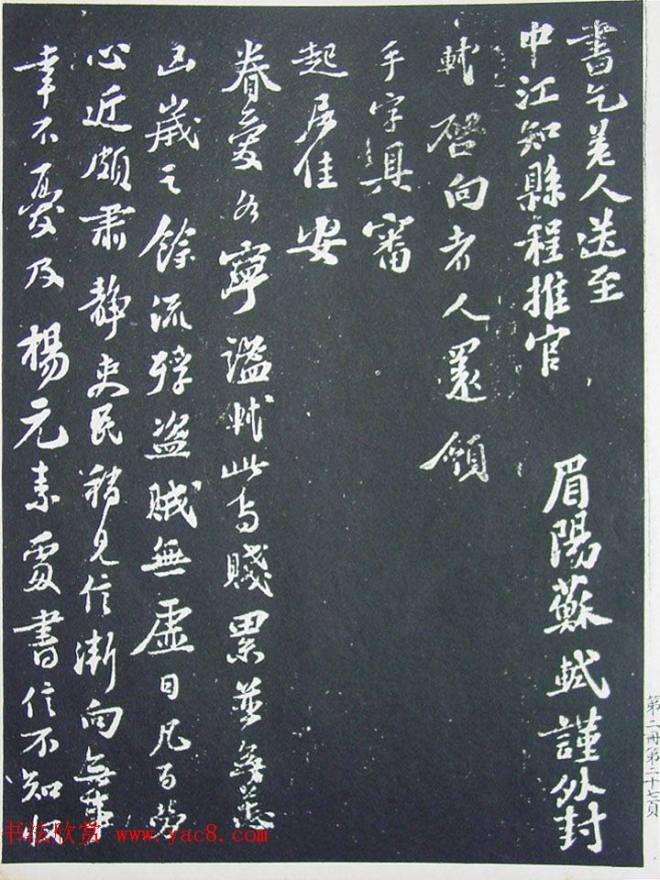 書乞差人送至
中江知縣程推官
眉陽蘇軾謹外封
軾啓向者人還領
手字具審
起居佳安
眷愛各寧謐軾此与賤累並無恙
凶歲之餘流殍盜賊無虛日凡百勞
心近頗肅靜吏民稍見信漸向無事
幸不憂及楊元素處書信不知何
第二冊第二十七頁
书法欣赏 www.yac8.com